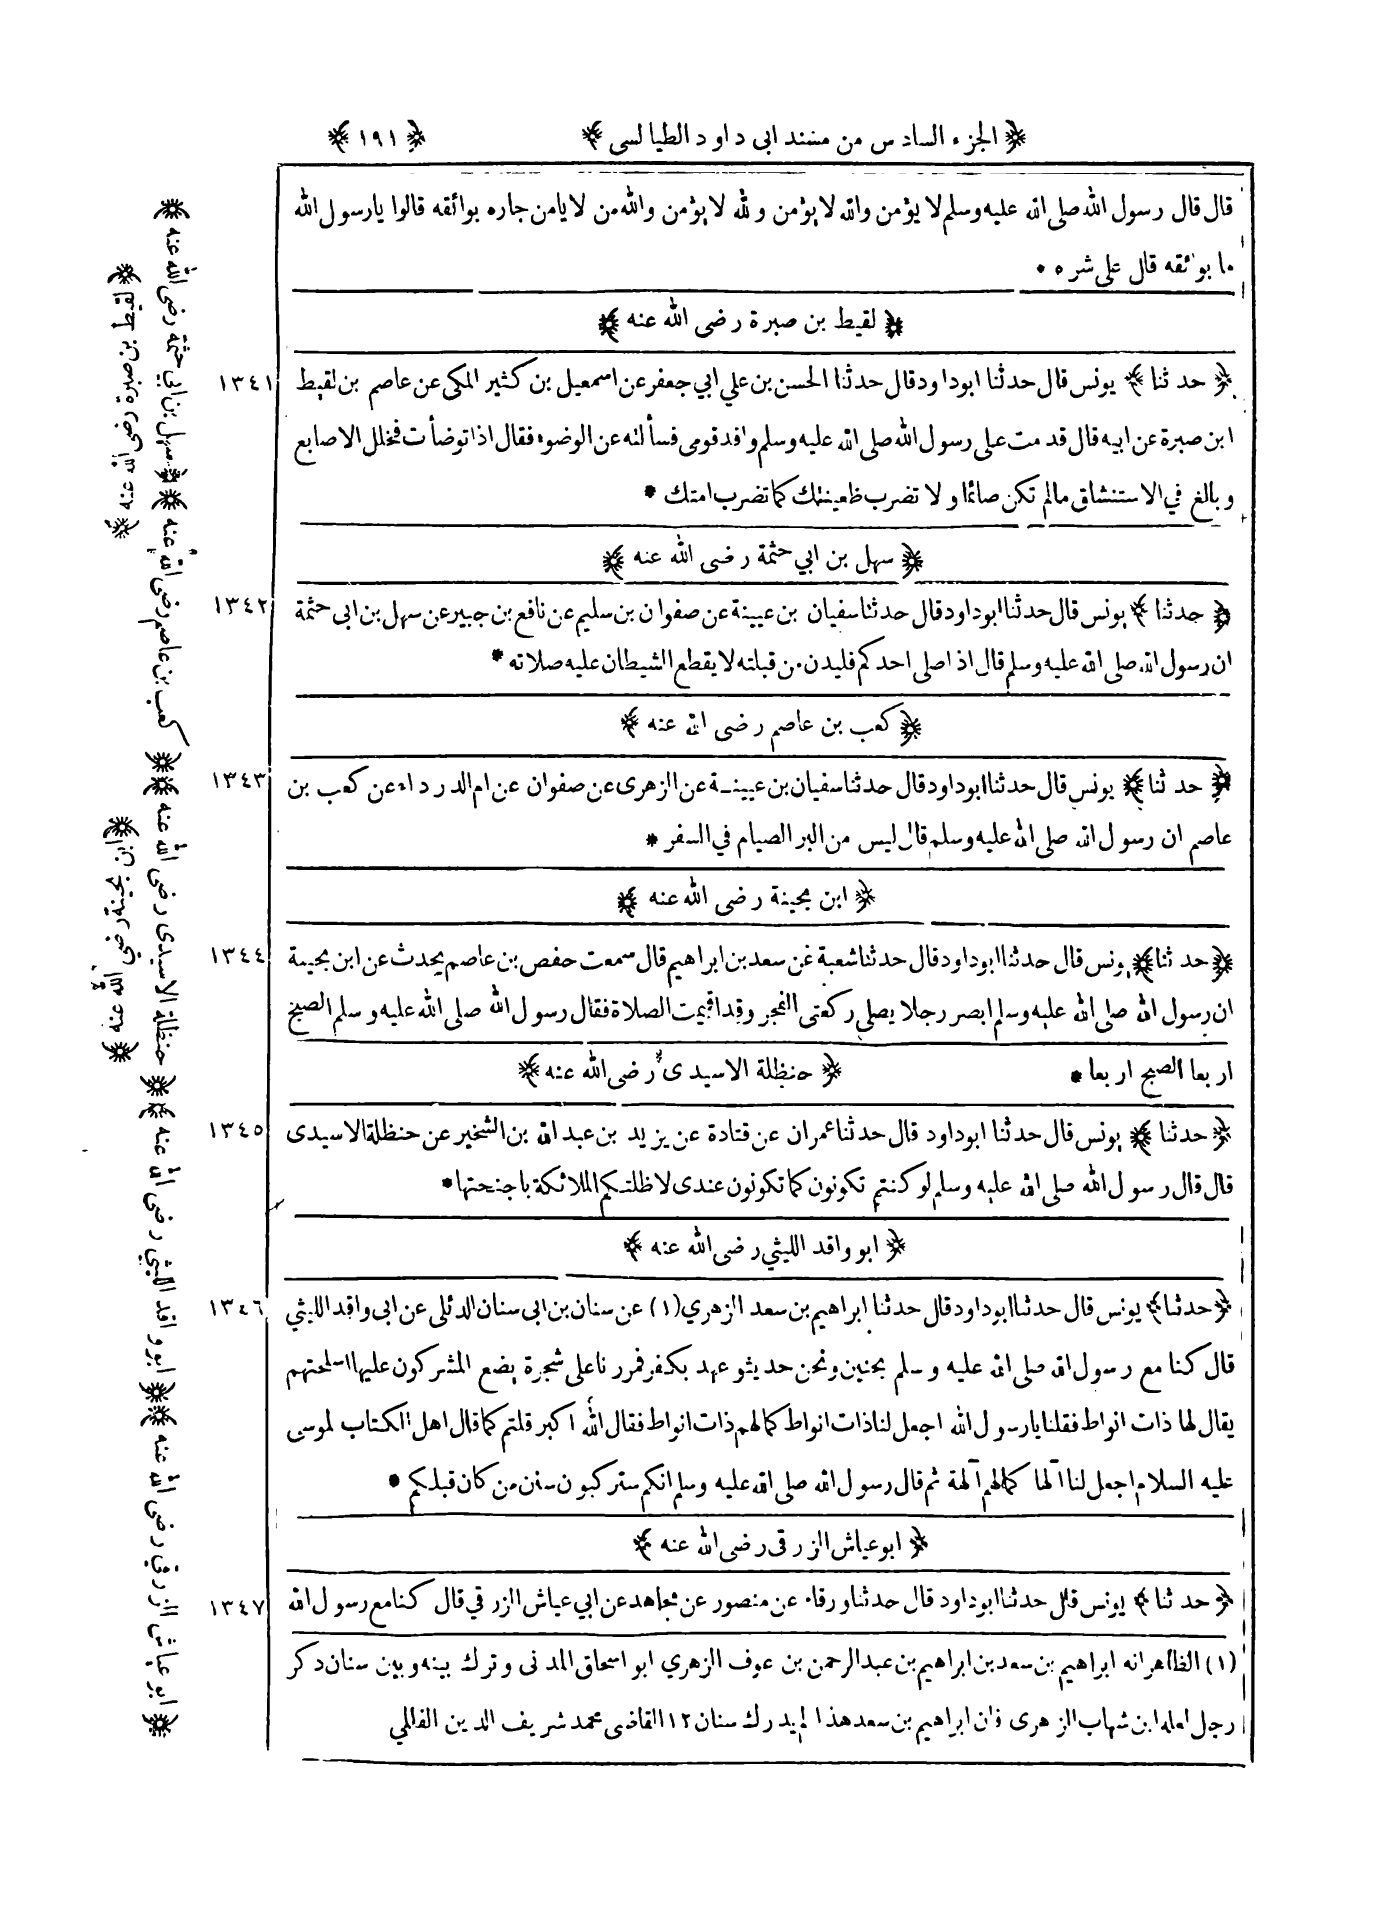 ﴿ الجزء السادس من مسند ابى داود الطيالسى ﴾ ﴿ ١٩١ ﴾
قال قال رسول الله صلى الله عليه وسلم لا يؤمن والله لا يؤمن والله لا يؤمن والله من لا يامن جاره بوائقه قالوا يا رسول الله
ما بوائقه قال على شره •
﴿ لقيط بن صبرة رضى الله عنه ﴾
١٣٤١ ﴿ حدثنا ﴾ يونس قال حدثنا ابوداود قال حدثنا الحسن بن علي ابي جعفر عن اسمعيل بن كثير المكى عن عاصم بن لقيط
ابن صبرة عن ابيه قال قدمت على رسول الله صلى الله عليه وسلم وافد قومى فسألته عن الوضوء فقال اذا توضأت فخلل الاصابع
وبالغ في الاستنشاق مالم تكن صائما ولا تضرب ظعينتك كما تضرب امتك *
﴿ سهل بن ابي حثمة رضى الله عنه ﴾
١٣٤٢ ﴿ حدثنا ﴾ يونس قال حدثنا ابوداود قال حدثنا سفيان بن عيينة عن صفوان بن سليم عن نافع بن جبير عن سهل بن ابى حثمة
ان رسول الله صلى الله عليه وسلم قال اذا صلى احدكم فليدن من قبلته لا يقطع الشيطان عليه صلاته *
﴿ كعب بن عاصم رضى الله عنه ﴾
١٣٤٣ ﴿ حدثنا ﴾ يونس قال حدثنا ابوداود قال حدثنا سفيان بن عيينة عن الزهرى عن صفوان عن ام الدرداء عن كعب بن
عاصم ان رسول الله صلى الله عليه وسلم قال ليس من البر الصيام في السفر *
﴿ ابن بحينة رضى الله عنه ﴾
١٣٤٤ ﴿ حدثنا ﴾ يونس قال حدثنا ابوداود قال حدثنا شعبة عن سعد بن ابراهيم قال سمعت حفص بن عاصم يحدث عن ابن بحينة
ان رسول الله صلى الله عليه وسلم ابصر رجلا يصلي ركعتى الفجر وقد اقيمت الصلاة فقال رسول الله صلى الله عليه وسلم الصبح
اربعا الصبح اربعا * ﴿ حنظلة الاسيدى رضى الله عنه ﴾
١٣٤٥ ﴿ حدثنا ﴾ يونس قال حدثنا ابوداود قال حدثنا عمران عن قتادة عن يزيد بن عبد الله بن الشخير عن حنظلة الاسيدى
قال قال رسول الله صلى الله عليه وسلم لو كنتم تكونون كما تكونون عندى لاظلتكم الملائكة باجنحتها *
﴿ ابو واقد الليثي رضى الله عنه ﴾
١٣٤٦ ﴿ حدثنا ﴾ يونس قال حدثنا ابوداود قال حدثنا ابراهيم بن سعد الزهري (١) عن سنان بن ابى سنان الدئلى عن ابى واقد الليثي
قال كنا مع رسول الله صلى الله عليه وسلم بحنين ونحن حديثو عهد بكفر فمررنا على شجرة يضع المشركون عليها اسلحتهم
يقال لها ذات انواط فقلنا يا رسول الله اجعل لنا ذات انواط كما لهم ذات انواط فقال الله اكبر قلتم كما قال اهل الكتاب لموسى
عليه السلام اجعل لنا آلها كما لهم آلهة ثم قال رسول الله صلى الله عليه وسلم انكم ستركبون سنن من كان قبلكم *
﴿ ابو عياش الزرقى رضى الله عنه ﴾
١٣٤٧ ﴿ حدثنا ﴾ يونس قال حدثنا ابوداود قال حدثنا ورقاء عن منصور عن مجاهد عن ابي عياش الزرقي قال كنا مع رسول الله
(١) الظاهر انه ابراهيم بن سعد بن ابراهيم بن عبد الرحمن بن عوف الزهري ابو اسحاق المدنى وترك بينه وبين سنان ذكر
رجل لعله ابن شهاب الزهرى فان ابراهيم بن سعد هذا لم يدرك سنان ١٢ القاضى محمد شريف الدين الفالمي
﴿ لقيط بن صبرة رضى الله عنه ﴾
﴿ سهل بن ابي حثمة رضى الله عنه ﴾
﴿ كعب بن عاصم رضى الله عنه ﴾
﴿ ابن بحينة رضي الله عنه ﴾
﴿ حنظلة الاسيدى رضى الله عنه ﴾
﴿ ابو واقد الليثي رضى الله عنه ﴾
﴿ ابو عياش الزرقي رضى الله عنه ﴾